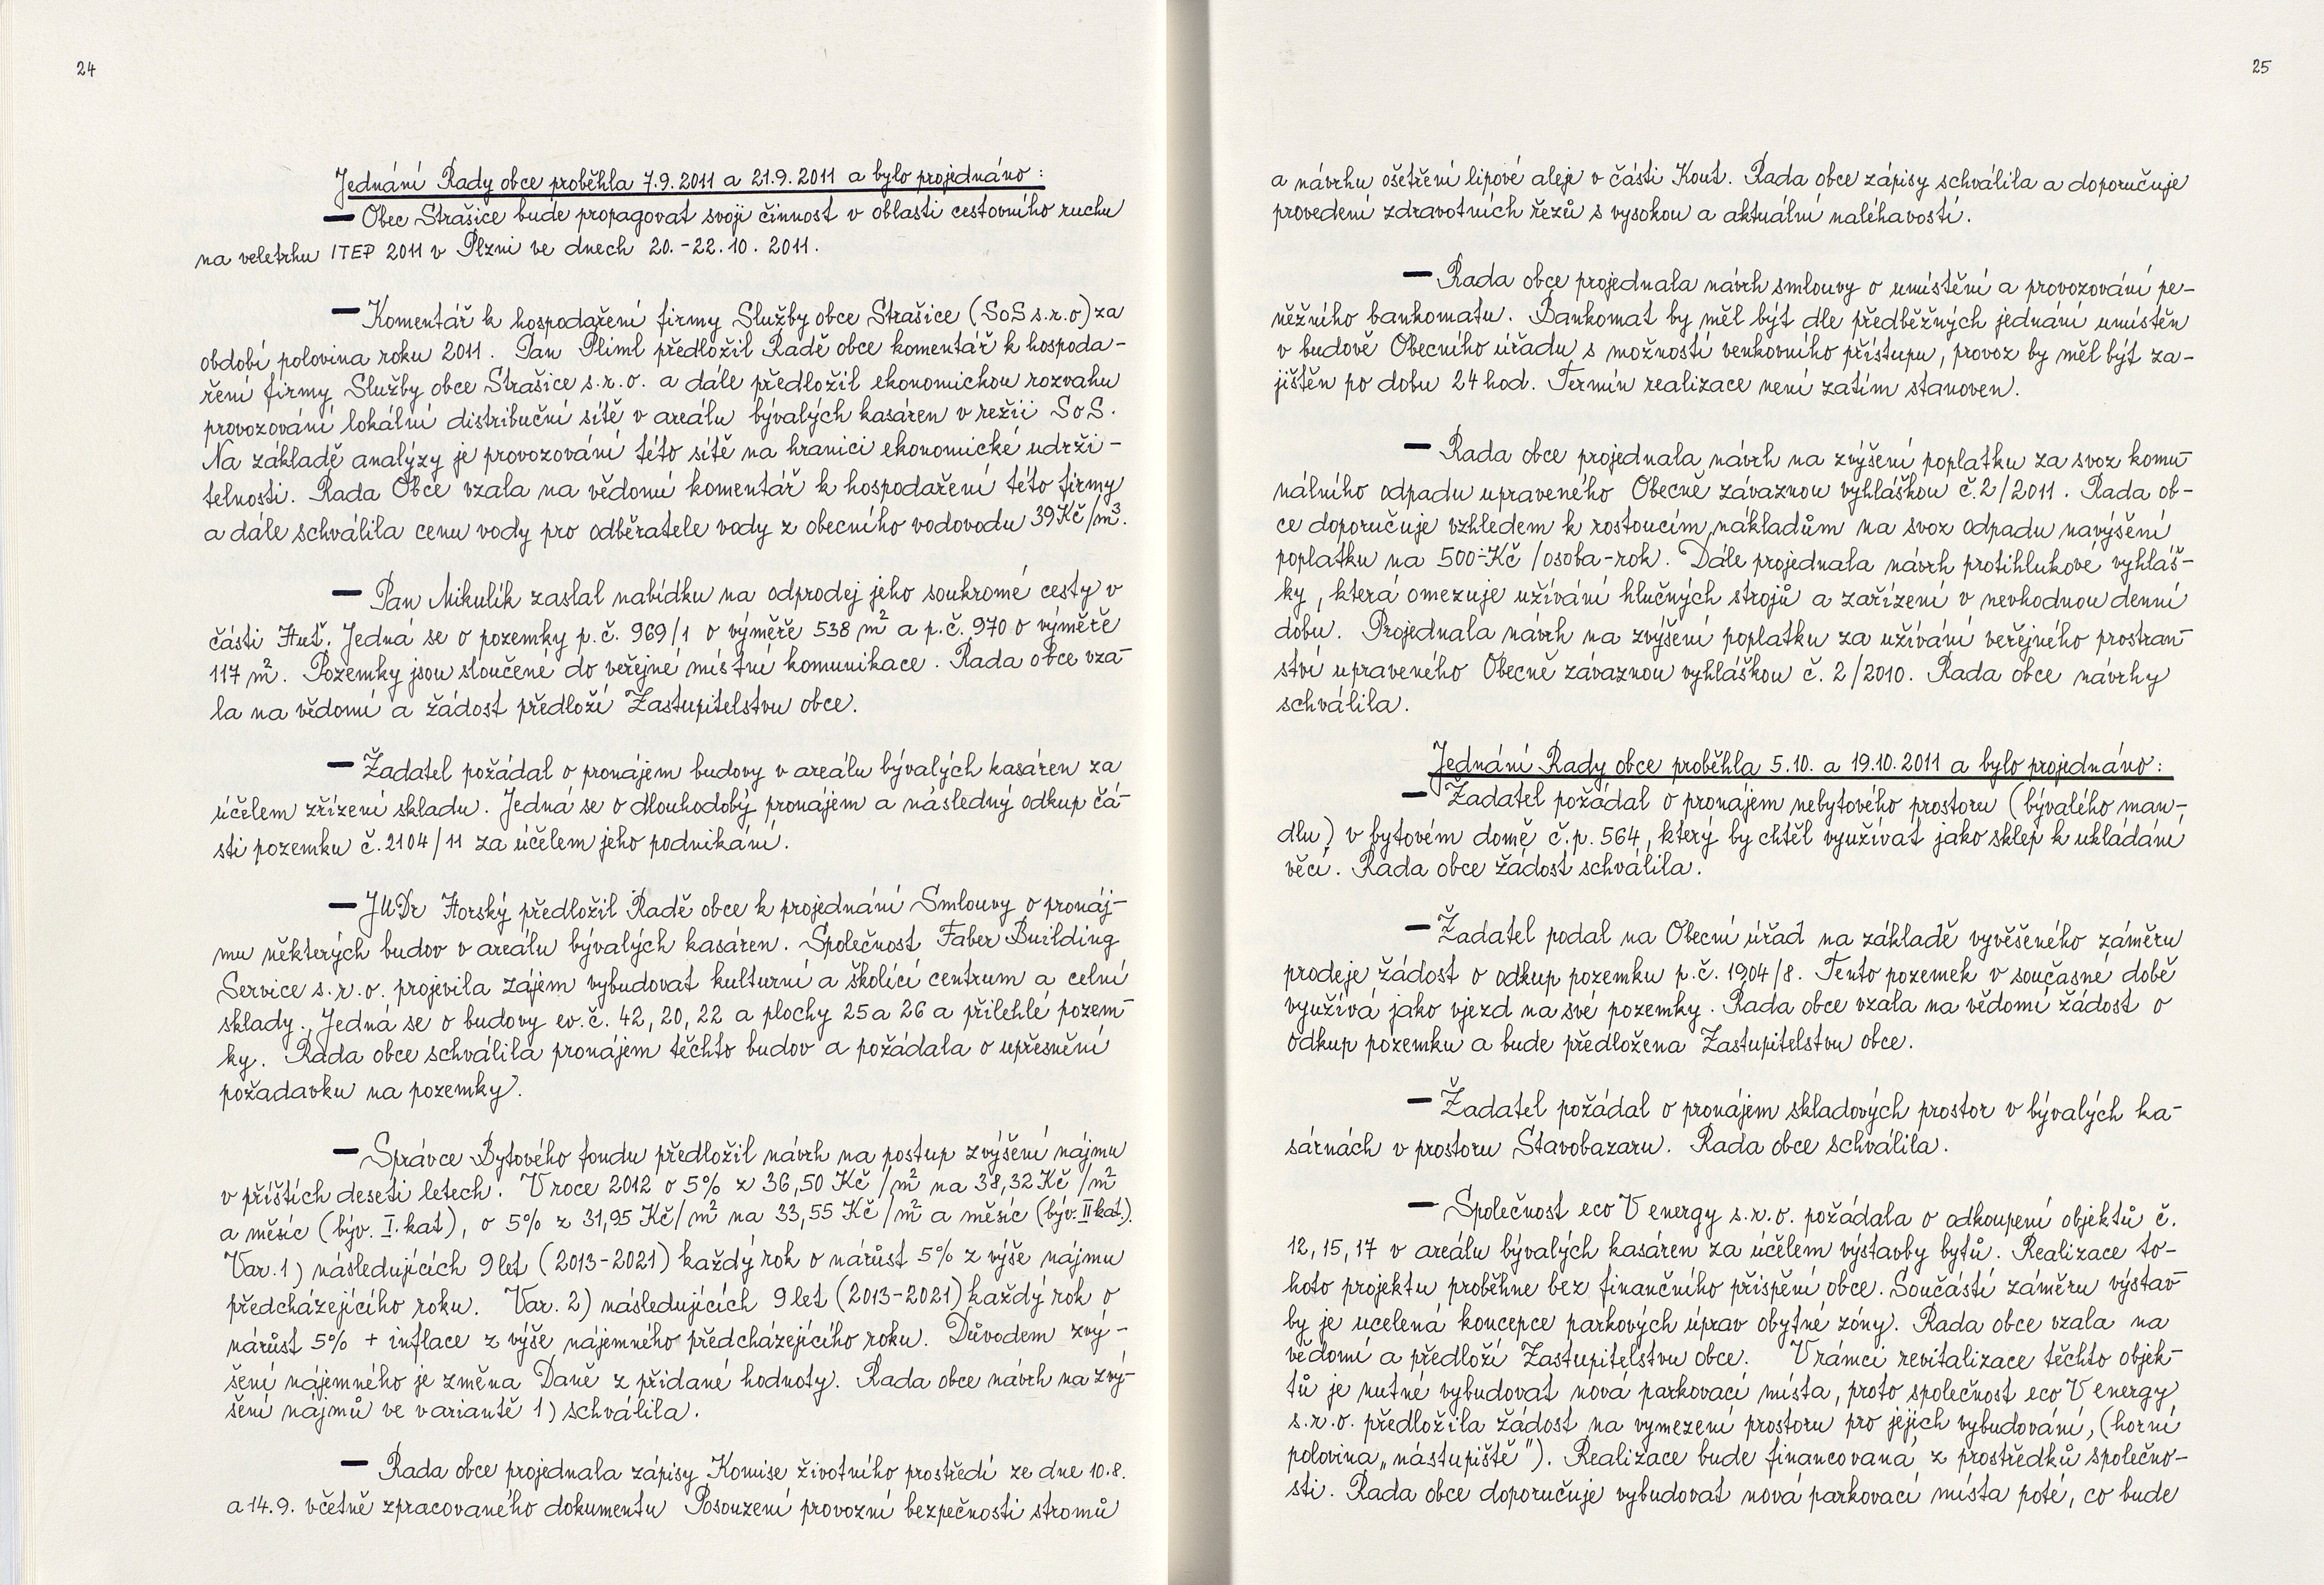 24
Jednání Rady obce proběhla 7.9.2011 a 21.9.2011 a bylo projednáno :
— Obec Strašice bude propagovat svoji činnost v oblasti cestovního ruchu
na veletrhu ITEP 2011 v Plzni ve dnech 20.-22.10. 2011.
— Komentář k hospodaření firmy Služby obce Strašice (SoS s.r.o) za
období polovina roku 2011. Pan Pliml předložil Radě obce komentář k hospoda-
ření firmy Služby obce Strašice s.r.o. a dále předložil ekonomickou rozvahu
provozování lokální distribuční sítě v areálu bývalých kasáren v režii SoS.
Na základě analýzy je provozování této sítě na hranici ekonomické udrži-
telnosti. Rada Obce vzala na vědomí komentář k hospodaření této firmy
a dále schválila cenu vody pro odběratele vody z obecního vodovodu 39Kč/m³.
— Pan Mikulík zaslal nabídku na odprodej jeho soukromé cesty v
části Huť. Jedná se o pozemky p.č. 969/1 o výměře 538 m² a p.č. 970 o výměře
117 m². Pozemky jsou sloučené do veřejné místní komunikace. Rada obce vza-
la na vědomí a žádost předloží Zastupitelstvu obce.
— Žadatel požádal o pronájem budovy v areálu bývalých kasáren za
účelem zřízení skladu. Jedná se o dlouhodobý pronájem a následný odkup čá-
sti pozemku č.2104/11 za účelem jeho podnikání.
— JUDr Horský předložil Radě obce k projednání Smlouvy o pronáj-
mu některých budov v areálu bývalých kasáren. Společnost Faber Building
Service s.r.o. projevila zájem vybudovat kulturní a školící centrum a celní
sklady. Jedná se o budovy ev.č. 42, 20, 22 a plochy 25 a 26 a přilehlé pozem-
ky. Rada obce schválila pronájem těchto budov a požádala o upřesnění
požadavku na pozemky.
— Správce Bytového fondu předložil návrh na postup zvýšení nájmu
v příštích deseti letech. V roce 2012 o 5% z 36,50 Kč/m² na 38,32 Kč/m²
a měsíc (býv. I. kat), o 5% z 31,95 Kč/m² na 33,55 Kč/m² a měsíc (býv. II kat.).
Var. 1) následujících 9 let (2013-2021) každý rok o nárůst 5% z výše nájmu
předcházejícího roku. Var. 2) následujících 9 let (2013-2021) každý rok o
nárůst 5% + inflace z výše nájemného předcházejícího roku. Důvodem zvý-
šení nájemného je změna Daně z přidané hodnoty. Rada obce návrh na zvý-
šení nájmů ve variantě 1) schválila.
— Rada obce projednala zápisy Komise životního prostředí ze dne 10.8.
a 14.9. včetně zpracovaného dokumentu Posouzení provozní bezpečnosti stromů
25
a návrhu ošetření lipové aleje v části Kout. Rada obce zápisy schválila a doporučuje
provedení zdravotních řezů s vysokou a aktuální naléhavostí.
— Rada obce projednala návrh smlouvy o umístění a provozování pe-
něžního bankomatu. Bankomat by měl být dle předběžných jednání umístěn
v budově Obecního úřadu s možností venkovního přístupu, provoz by měl být za-
jištěn po dobu 24 hod. Termín realizace není zatím stanoven.
— Rada obce projednala návrh na zvýšení poplatku za svoz komu-
nálního odpadu upraveného Obecně závaznou vyhláškou č.2/2011. Rada ob-
ce doporučuje vzhledem k rostoucím nákladům na svoz odpadu navýšení
poplatku na 500,-Kč /osoba-rok. Dále projednala návrh protihlukové vyhláš-
ky, která omezuje užívání hlučných strojů a zařízení v nevhodnou denní
dobu. Projednala návrh na zvýšení poplatku za užívání veřejného prostran-
ství upraveného Obecně závaznou vyhláškou č. 2/2010. Rada obce návrhy
schválila.
Jednání Rady obce proběhla 5.10. a 19.10.2011 a bylo projednáno:
— Žadatel požádal o pronájem nebytového prostoru (bývalého man-
dlu) v bytovém domě č.p. 564, který by chtěl využívat jako sklep k ukládání
věcí. Rada obce žádost schválila.
— Žadatel podal na Obecní úřad na základě vyvěšeného záměru
prodeje žádost o odkup pozemku p.č. 1904/8. Tento pozemek v současné době
využívá jako vjezd na své pozemky. Rada obce vzala na vědomí žádost o
odkup pozemku a bude předložena Zastupitelstvu obce.
— Žadatel požádal o pronájem skladových prostor v bývalých ka-
sárnách v prostoru Stavobazaru. Rada obce schválila.
— Společnost eco V energy s.r.o. požádala o odkoupení objektů č.
12, 15, 17 v areálu bývalých kasáren za účelem výstavby bytů. Realizace to-
hoto projektu proběhne bez finančního přispění obce. Součástí záměru výstav-
by je ucelená koncepce parkových úprav obytné zóny. Rada obce vzala na
vědomí a předloží Zastupitelstvu obce. V rámci revitalizace těchto objek-
tů je nutné vybudovat nová parkovací místa, proto společnost eco V energy
s.r.o. předložila žádost na vymezení prostoru pro jejich vybudování, (horní
polovina „nástupiště"). Realizace bude financovaná z prostředků společno-
sti. Rada obce doporučuje vybudovat nová parkovací místa poté, co bude